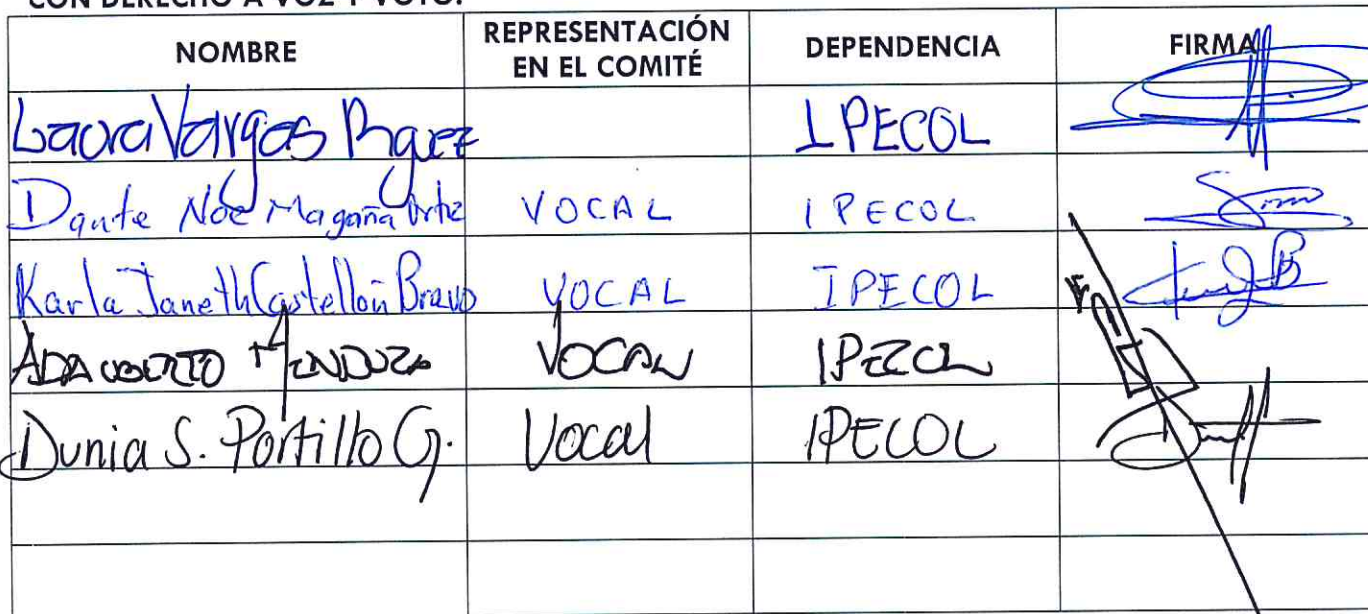 CON DERECHO A VOZ Y VOTO.
NOMBRE REPRESENTACIÓN EN EL COMITÉ DEPENDENCIA FIRMA
Laura Vargas Rguez IPECOL
Dante Noé Magaña Ortiz VOCAL IPECOL
Karla Janeth Castellón Bravo VOCAL IPECOL
ADALBERTO MENDOZA VOCAL IPECOL
Dunia S. Portillo G. Vocal IPECOL